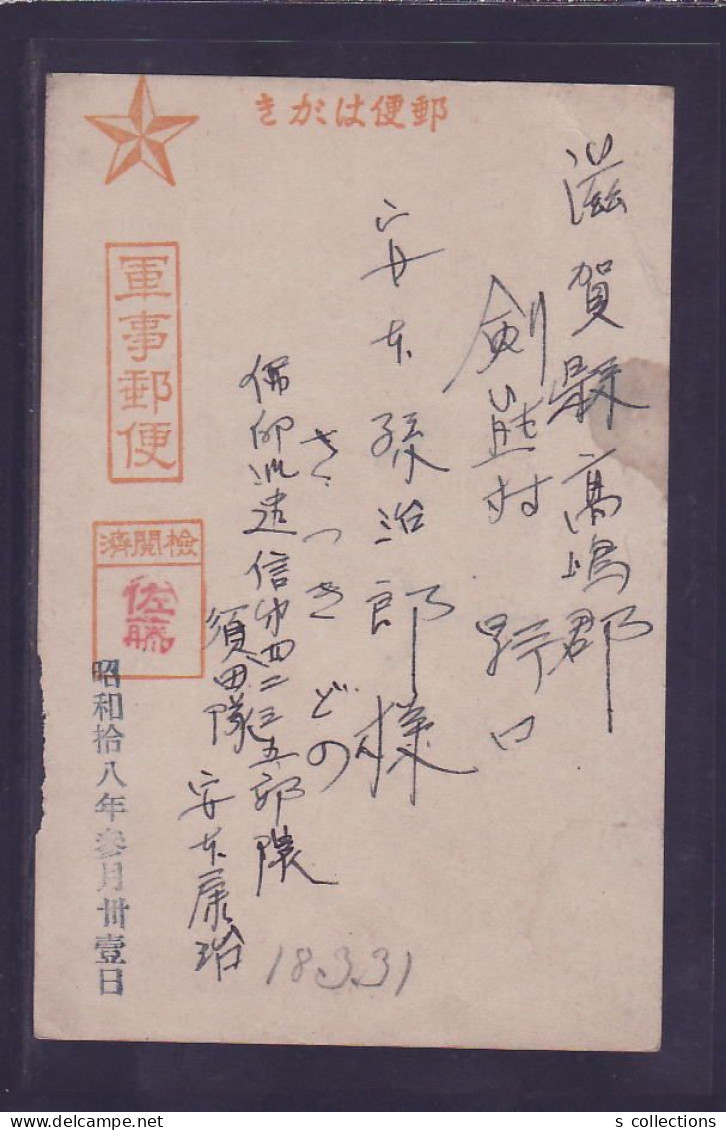 郵便はがき
滋賀縣高嶋郡
剣熊村 野口
安本孫治郎様
さつき どの
佛印派遣信第四二三五部隊
須田隊
安本康治
軍事郵便
檢閱濟
佐藤
昭和拾八年参月卅壹日
18.3.31
s collections